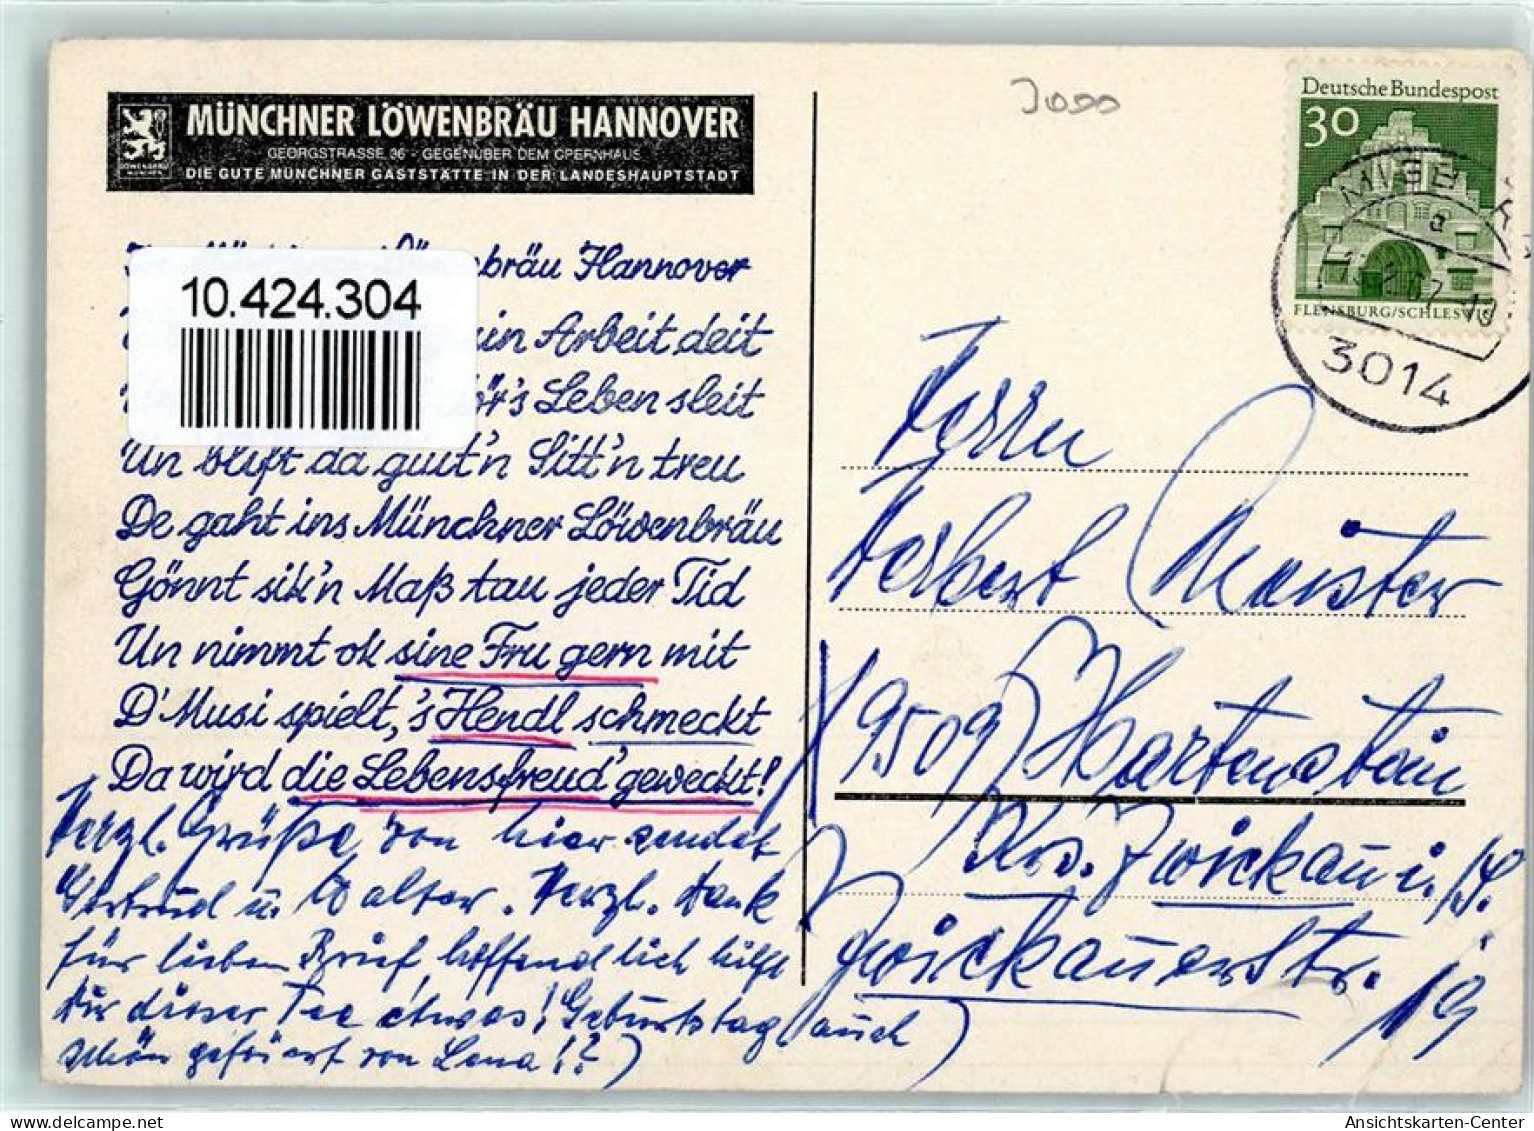 MÜNCHNER LÖWENBRÄU HANNOVER
GEORGSTRASSE 36 - GEGENÜBER DEM OPERNHAUS
DIE GUTE MÜNCHNER GASTSTÄTTE IN DER LANDESHAUPTSTADT
LÖWENBRÄU
MÜNCHEN
bräu Hannover
10.424.304
in Arbeit deit
ör's Leben sleit
Un blift da guut'n Sitt'n treu
De gaht ins Münchner Löwenbräu
Gönnt sik'n Maß tau jeder Tid
Un nimmt ok sine Fru gern mit
D'Musi spielt,'s Hendl schmeckt
Da wird die Lebensfreud' geweckt!
Herzl. Grüße von hier sendet
Gertrud u. Walter. Herzl. Dank
für lieben Brief, hoffendlich hilft
Dir dieser Tee etwas! (Geburtstag auch
schön gefeiert von Lena!?)
3000
Deutsche Bundespost
30
FLENSBURG/SCHLESWIG
a
3014
Herrn
Herbert Meister
9509 Hartenstein
Krs. Zwickau i./S.
Zwickauerstr. 19
Ansichtskarten-Center